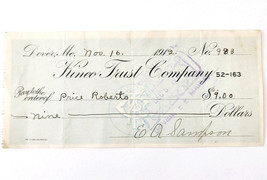 Dover, Mo. Nov. 16 1912 No. 988
Kinco Trust Company 52-163
Pay to the order of Price Roberts $9.00
Nine Dollars
E A Sampson